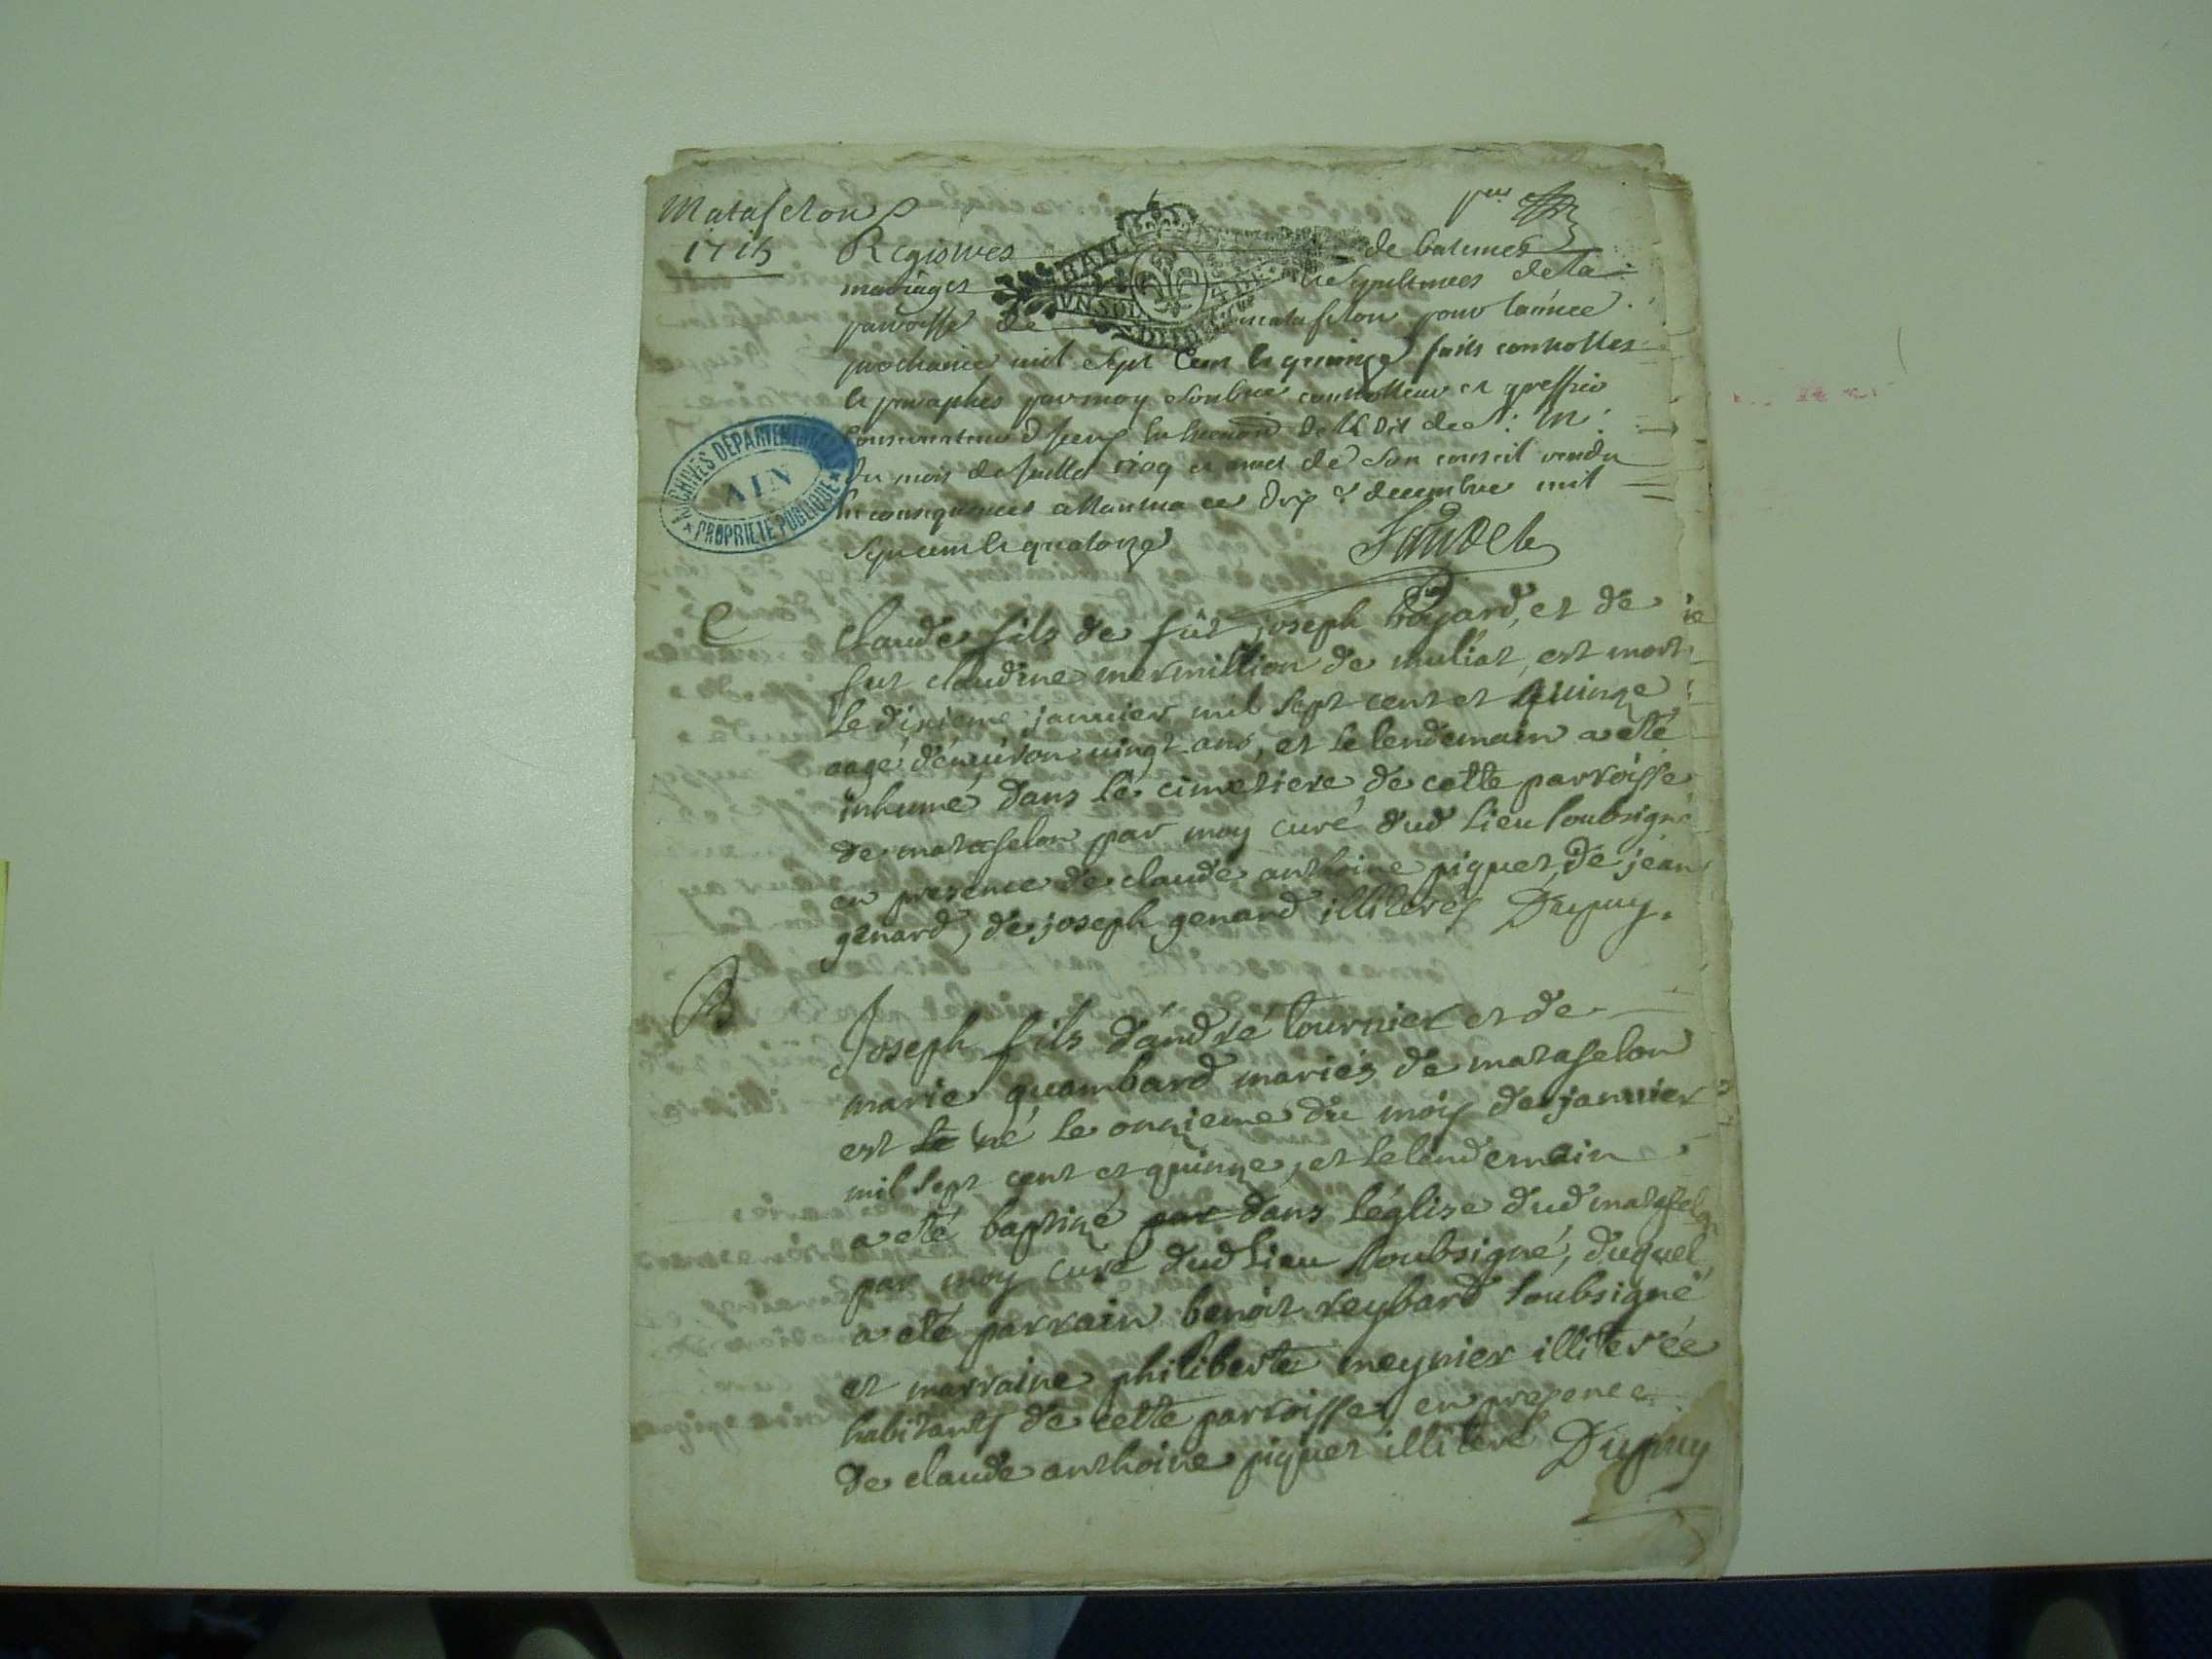 Matafelon
1715
Registres de batemes
mariages et Sepultures de la
parroisse de matafelon pour lannée
prochaine mil Sept Cent et quinze faits controlles
et paraphes par moy controlleur et greffier
du mois de Juillet et arrest de Son conseil rendu
en consequence a Nantua ce dix decembre mil
Sept cent et quatorze
ARCHIVES DÉPARTEMENTALES
AIN
PROPRIÉTÉ PUBLIQUE
claude fils de fût joseph et de
fut claudine mermillion de muliat, est mort
le dixieme janvier mil sept cent et quinze
aagé d'environ vingt ans, et le lendemain a eté
inhumé dans le cimetiere de cette parroisse
de matafelon par moy curé dud lieu soubsigné
en presence de claude anthoine piquet, de jean
genard, de joseph genard illiterés Dupuy.
B
Joseph fils d'andré tournier et de
marie guambard mariés de matafelon
est né le onzieme du mois de janvier
mil sept cent et quinze, et le lendemain
a eté baptizé par dans l'église dud matafelon
par moy curé dud lieu soubsigné, duquel
a eté parrain benoit reybard soubsigné
et marraine philiberte meynier illiterée
habitants de cette parroisse, en presence
de claude anthoine piquet illiteré Dupuy